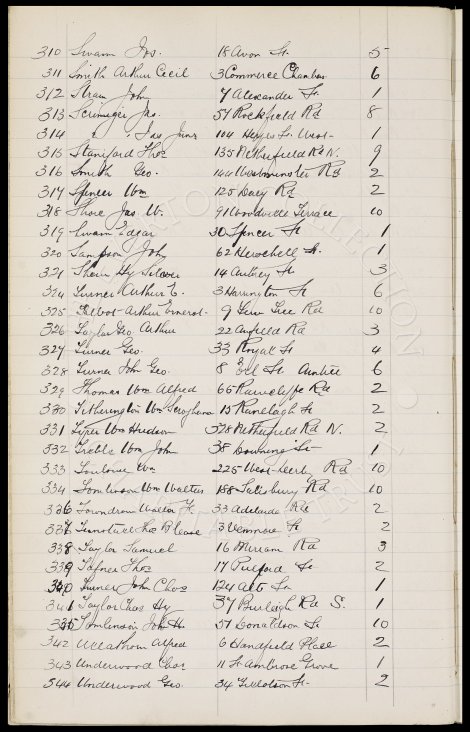 310 Swann Jos. 18 Avon St. 5
311 Smith Arthur Cecil 3 Commerce Chambers 6
312 Stram John 7 Alexander St 1
313 Scrimiger Jas. 57 Rockfield Rd 8
314 " Jas Junr 104 Heyes St. West- 1
315 Staniford Thos 135 Netherfield Rd N. 9
316 Smith Geo. 144 Westminster Rd 2
317 Spencer Wm 125 Dacy Rd 2
318 Shore Jas. W. 91 Woodville Terrace 10
319 Swann Edgar 30 Spencer St 1
320 Sampson John 62 Herschell St. 1
321 Hy 14 Aubrey St 3
324 Turner Arthur E. 3 Harrington St 6
325 Talbot Arthur Ernest- 9 Yew Tree Rd 10
326 Taylor Geo Arthur 22 Anfield Rd 3
327 Turner Geo. 33 Royal St 4
328 Turner John Geo. 8 St Aintree 6
329 Thomas Wm Alfred 65 Rawcliffe Rd 2
330 Titherington Wm 15 Ranelagh St 2
331 Wm Hudson 378 Netherfield Rd N. 2
332 Treble Wm John 38 Downing St- 1
333 Toulouse Wm 225 West Derb Rd 10
334 Tomlinson Wm Walter 158 Salisbury Rd 10
336 Toundrow Walter H. 33 Adelaide Rd 2
337 Thos Blease 3 Venmore St 2
338 Taylor Samuel 16 Miriam Rd 3
339 Tafner Thos 17 Pulford St 2
340 Turner John Chas 124 Alt St 1
341 Taylor Chas Hy 37 Burleigh Rd S. 1
335 Tomlinson John H. 57 Donaldson St 10
342 Alfred 6 Handfield Place 2
343 Underwood Chas 11 St Ambrose Grove 1
344 Underwood Geo. 34 Tillotson St- 2